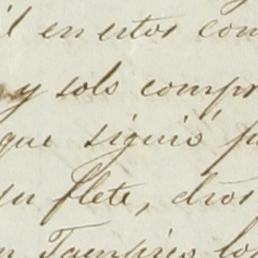 en estos com
y solo compr
que siguió p
su flete, dros
Tampico lo